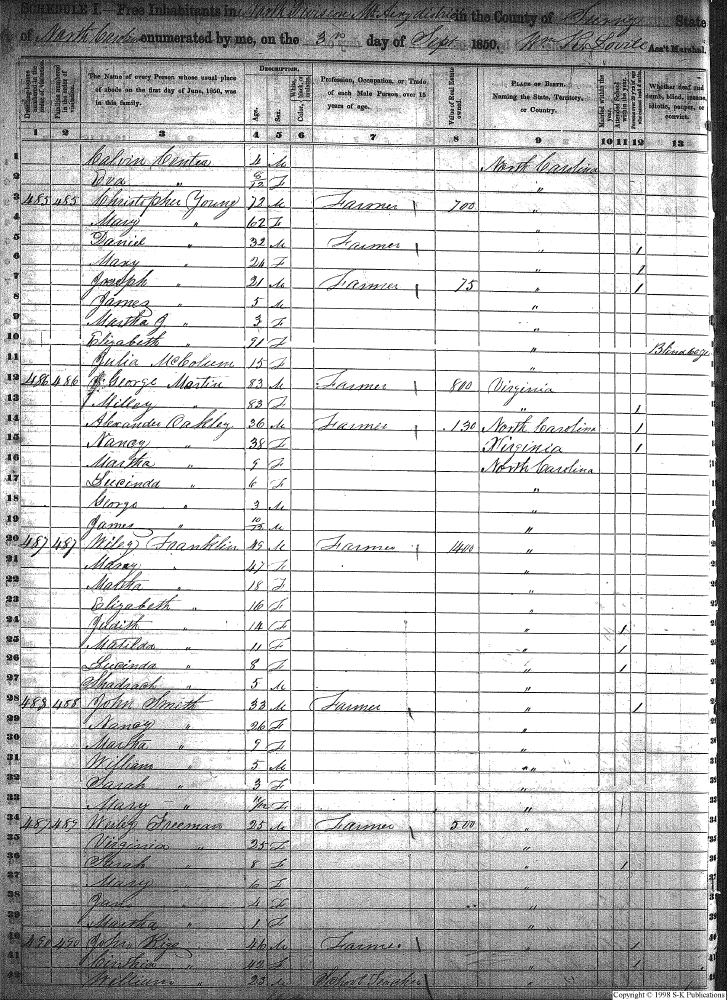 SCHEDULE I.—Free Inhabitants in North Division in the County of Surry State
of North enumerated by me, on the 3rd day of Sept 1850. Wm Ass't Marshal.
DESCRIPTION.
The Name of every Person whose usual place of abode on the first day of June, 1850, was in this family.
Age.
Sex.
Profession, Occupation, or Trade of each Male Person over 15 years of age.
Value of Real Estate owned.
PLACE OF BIRTH. Naming the State, Territory, or Country.
Whether deaf and dumb, blind, insane, idiotic, pauper, or convict.
1 2 3 4 5 6 7 8 9 10 11 12 13
1 Calvin 4 M North Carolina
2 " 8/12 F "
3 485 485 Christopher Young 72 M Farmer 700 "
4 Mary " 62 F "
5 Daniel " 32 M Farmer " 1
6 Mary " 24 F " 1
7 Joseph " 21 M Farmer 75 " 1
8 James " 5 M "
9 Martha J " 3 F "
10 Elizabeth " 91 F " Blind
11 Julia 15 F "
12 486 486 George Martin 83 M Farmer 800 Virginia
13 83 F " 1
14 Alexander Oakley 36 M Farmer 130 North Carolina 1
15 Nancy " 38 F Virginia 1
16 Martha " 9 F North Carolina
17 Lucinda " 6 F "
18 George " 3 M "
19 James " 10/12 M "
20 487 487 Wiley Franklin 49 M Farmer 1400 "
21 Mary " 47 F "
22 Martha " 18 F "
23 Elizabeth " 16 F "
24 Judith " 14 F " 1
25 Matilda " 11 F " 1
26 Lucinda " 8 F " 1
27 Shadrach " 5 M "
28 488 488 John Smith 33 M Farmer " 1
29 Nancy " 26 F "
30 Martha " 9 F "
31 William " 5 M "
32 Sarah " 3 F "
33 Mary " F "
34 489 489 Wesley Freeman 25 M Farmer 500 "
35 Virginia " 25 F "
36 Sarah " 8 F " 1
37 Mary " 6 F "
38 " 4 F "
39 Martha " 1 F "
40 490 490 John 46 M Farmer " 1
41 " 42 F " 1
42 William " 23 M School Teacher "
Copyright © 1998 S-K Publications